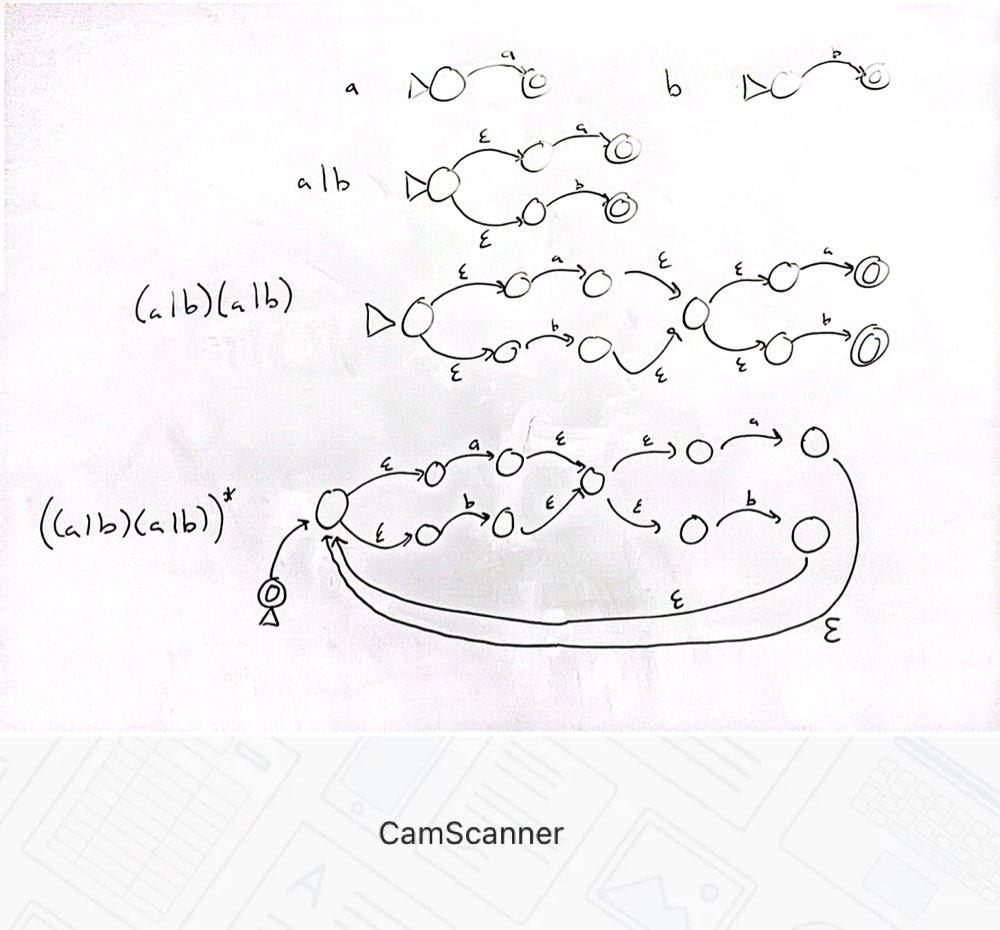 a a b b
a|b ε a ε b
(a|b)(a|b) ε a ε ε a ε b ε ε b
((a|b)(a|b))* ε a ε ε a ε b ε ε b ε ε
CamScanner